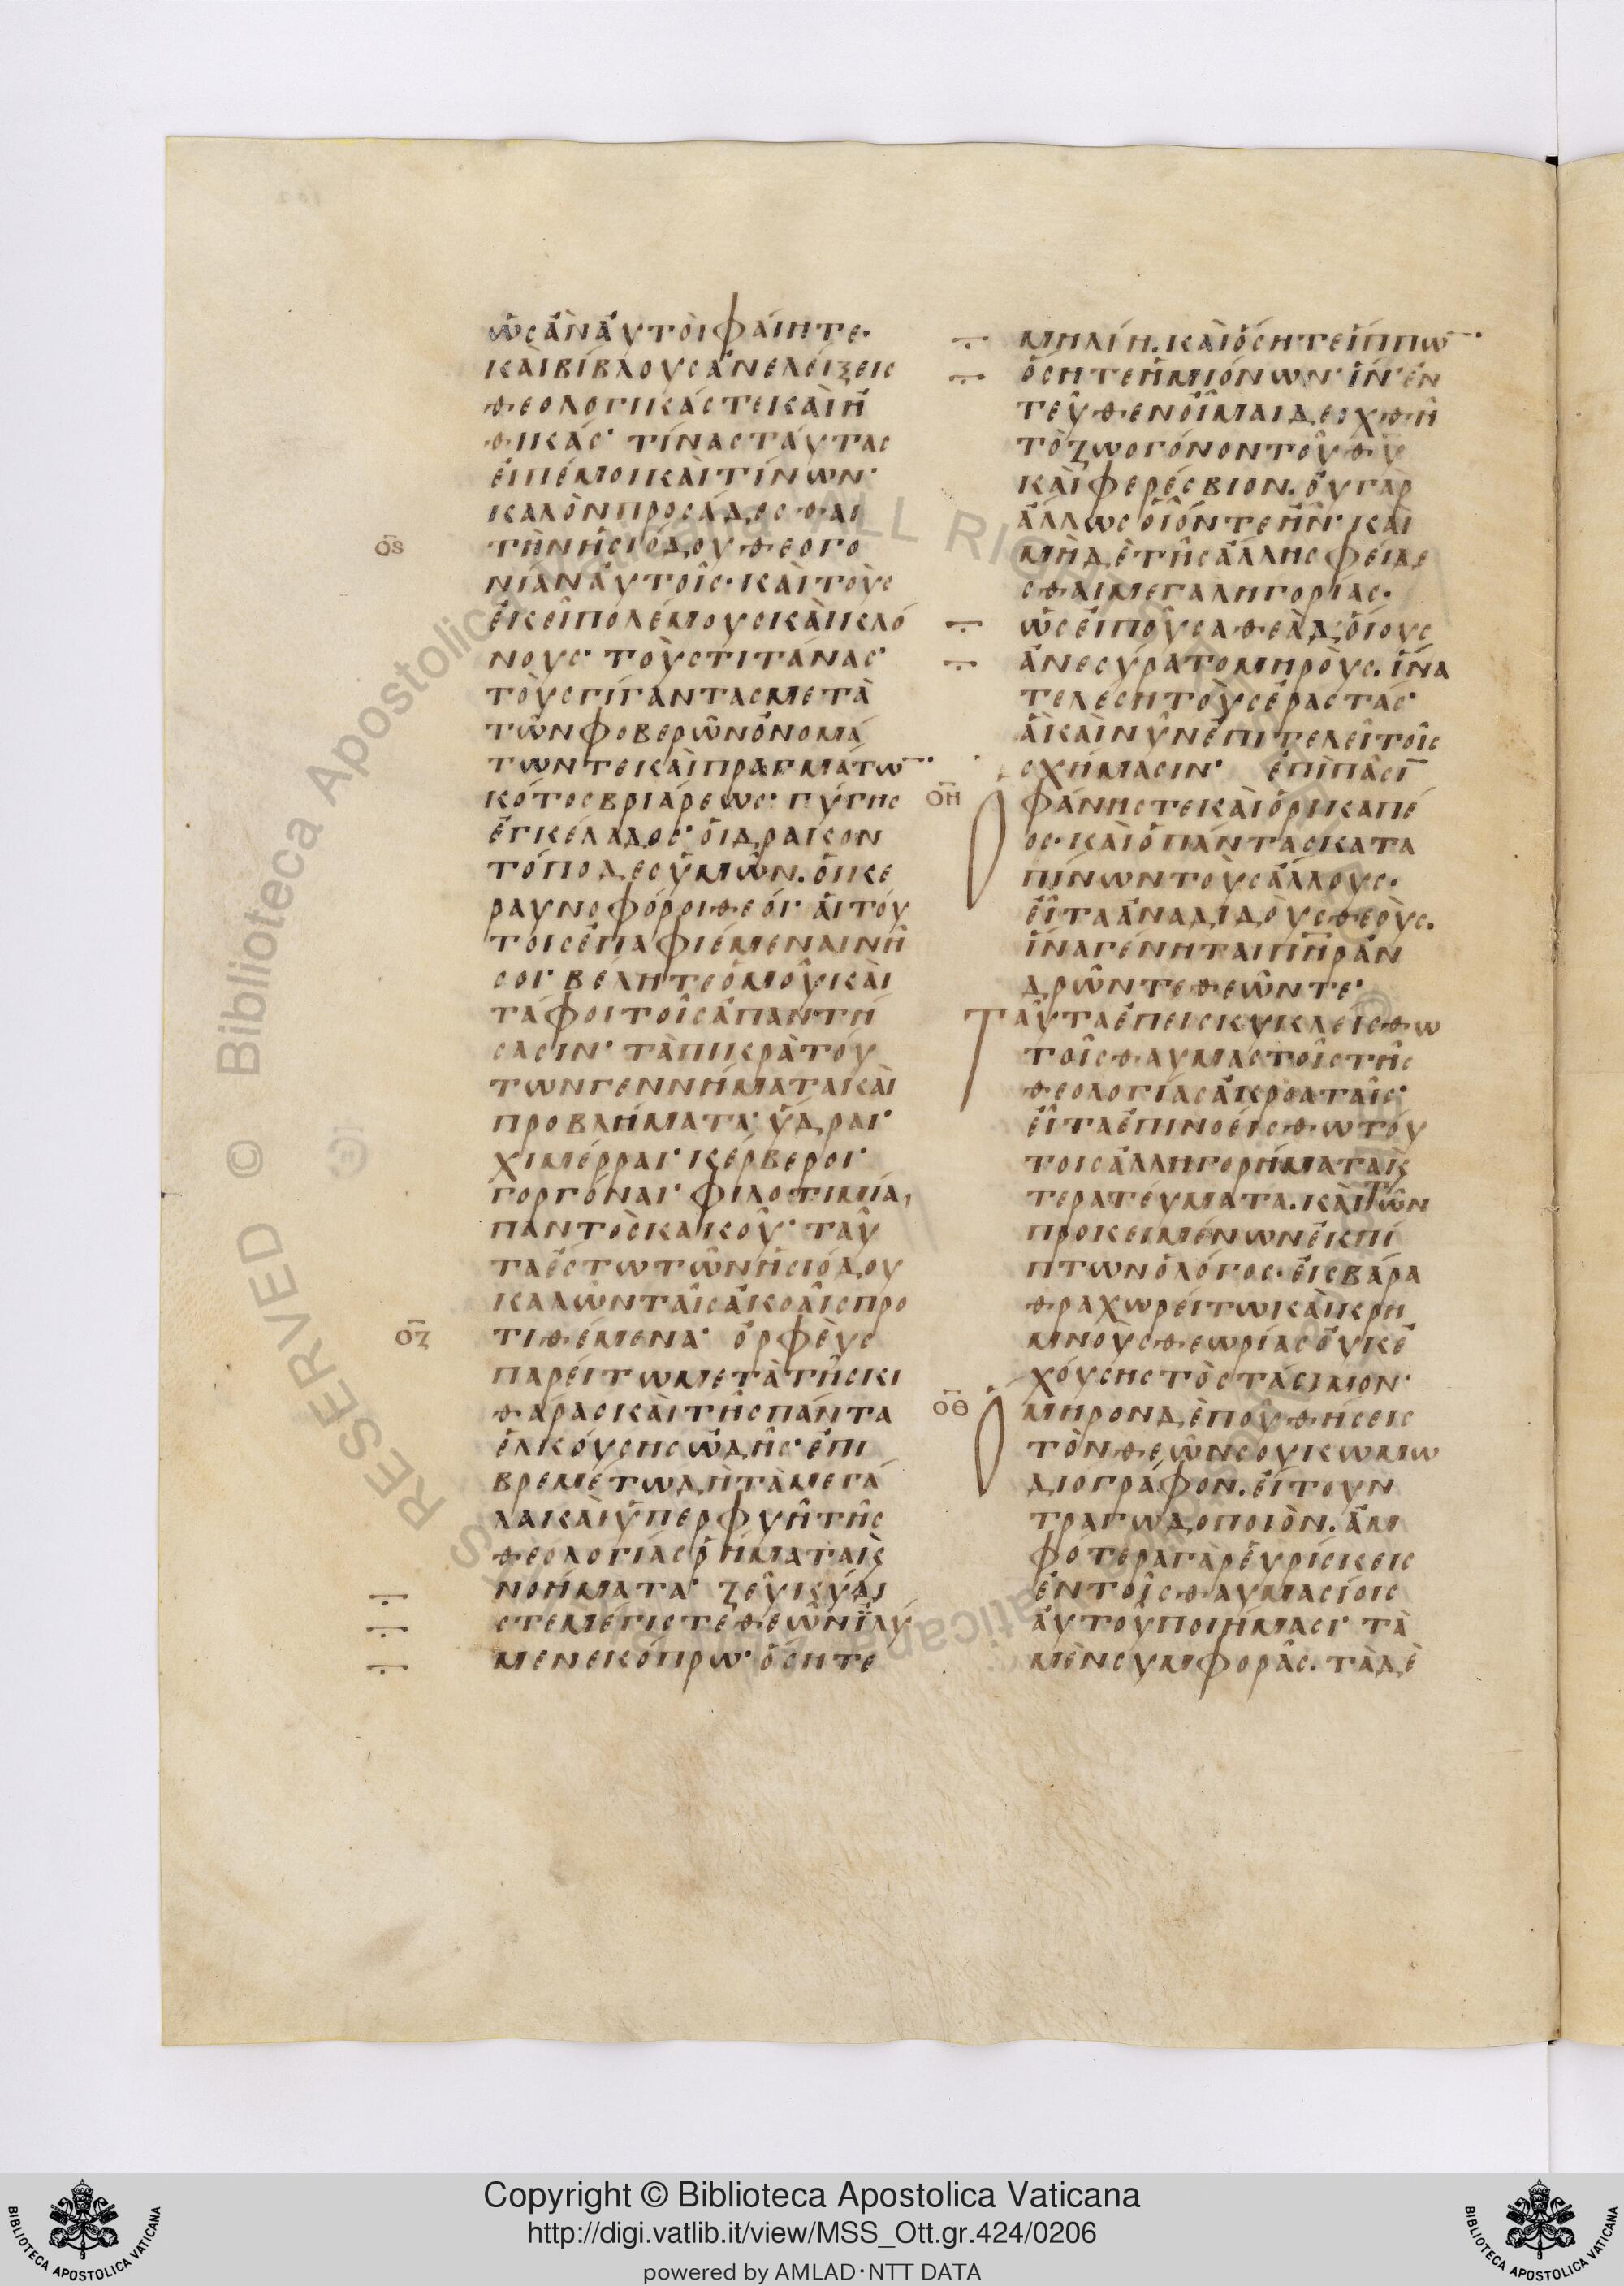 ὡς ἂν ἀυτὸι φάιητε·
κὰι βίβλους ἀνελέιξεις
θεολογικάς τε κὰι ἠ
θικάς· τίνας τάυτας
ἐιπέ μοι κὰι τίνων·
καλὸν προσάδεσθαι
ο̅ς̅
τὴν ἡσιόδου θεογο
νίαν ἀυτοῖς· κὰι τοὺς
ἐκεῖ πολέμους κὰι κλό
νους· τοὺς τιτάνας·
τοὺς γίγαντας μετὰ
τῶν φοβερῶν ὀνομά
των τε κὰι πραγμάτω̅
κότος βριάρεως· γύγης
ἐγκέλαδος· ὁι δρακον
τόποδες ὑμῶν. ὁι κε
ραυνοφόροι θεόι· ἁι τόυ
τοις ἐπαφιέμεναι νῆ
σοι· βέλη τε ὁμοῦ κὰι
τάφοι τοῖς ἀπαντή
σασιν· τὰ πικρὰ τόυ
των γεννήματα κὰι
προβλήματα· ὕδραι·
χιμέρραι· κέρβεροι·
γοργόναι· φιλοτιμία,
παντὸς κακοῦ· ταῦ
τα ἔστω τῶν ἡσιόδου
καλῶν τᾶις ἀκοᾶις προ
ο̅ζ̅
τιθέμενα· ὀρφὲυς
παρέιτω μετὰ τῆς κι
θάρας κὰι τῆς πάντα
ἑλκόυσης ὠδῆς· ἐπι
βρεμέτω δὴ τὰ μεγά
λα κὰι ὑπερφυῆ τῆς
θεολογίας ῥήματα κ̀
νοήματα· ζεῦ κύδι
στε μέγιστε θεῶν ἰλύ
μενε κόπρω· ὅση τε
μηλίη. κὰι ὅση τε ἵππω̅
ὅση τε ἡμιόνων· ἵν' ἐν
τεῦθεν ὄιμαι δειχθῆ
τὸ ζωογόνον τοῦ θ̅υ̅
κὰι φερέσβιον. ὀυ γὰρ
ἄλλως ὁῖόν τε ἦν· κὰι
μὴ δὲ τῆς ἄλλης φείδε
σθαι μεγαληγορίας·
ὣς ἐιποῦσα θεὰ δόιους
ἀνεσύρατο μηρὸυς. ἵνα
τελέση τοὺς ἐραστάς·
ἃ κὰι νῦν ἔτι τελεῖ τοῖς
σχήμασιν· ἐπὶ πᾶσι̅
ο̅η̅
φάνης τε κὰι ὁ ἠρικαπέ
ος· κὰι ὁ πάντας κατα
πίνων τοὺς ἄλλους·
ἐῖτα ἀναδιδὸυς θεὸυς.
ἵνα γένηται π̅η̅ρ̅ ἀν
δρῶν τε θεῶν τε·
Ταῦτα ἐπεισκυκλείσθω
τοῖς θαυμαστοῖς τῆς
θεολογίας ἀκροαταῖς·
ἐῖτα ἐπινοέισθω τόυ
τοις ἀλληγορήματα κ̀
τερατέυματα. κὰι τῶν
προκειμένων ἐκπί
πτων ὁ λόγος· ἐις βάρα
θρα χωρέιτω κὰι κρη
μνὸυς θεωρίας ὀυκ ἐ
χόυσης τὸ στάσιμον·
ο̅θ̅
ὅμηρον δὲ ποῦ θήσεις
τὸν θεῶν σου κωμω
διογράφον. ἐίτουν
τραγωδοποιὸν. ἀμ
φότερα γὰρ ἑυρίσκεις
ἐν τοῖς θαυμασίοις
ἀυτοῦ ποιήμασι· τὰ
μὲν συμφορᾶς. τὰ δὲ
Copyright © Biblioteca Apostolica Vaticana
http://digi.vatlib.it/view/MSS_Ott.gr.424/0206
powered by AMLAD·NTT DATA